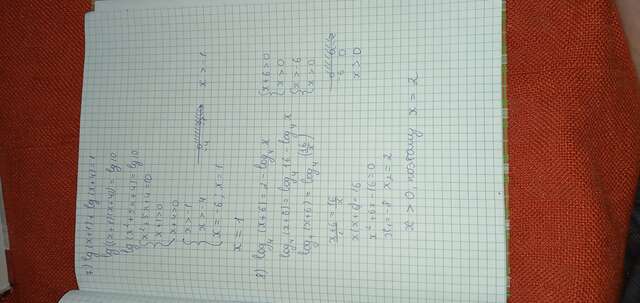 7) lg(x+1) + lg(x+4) = 1
lg((x+1)(x+4)) = lg 10
x+1>0
x+4>0
x > -4
x = -6, x = 1
x > 1
x = 1
8) log₄(x+6) = 2 - log₄ x
log₄(x+6) = log₄ 16 - log₄ x
log₄(x+6) = log₄ (16/x)
x+6 = 16/x
x(x+6) = 16
x² + 6x - 16 = 0
x₁ = -8 x₂ = 2
x+6>0
x>0
x>0
-6 0
x > 0
x > 0, поэтому x = 2